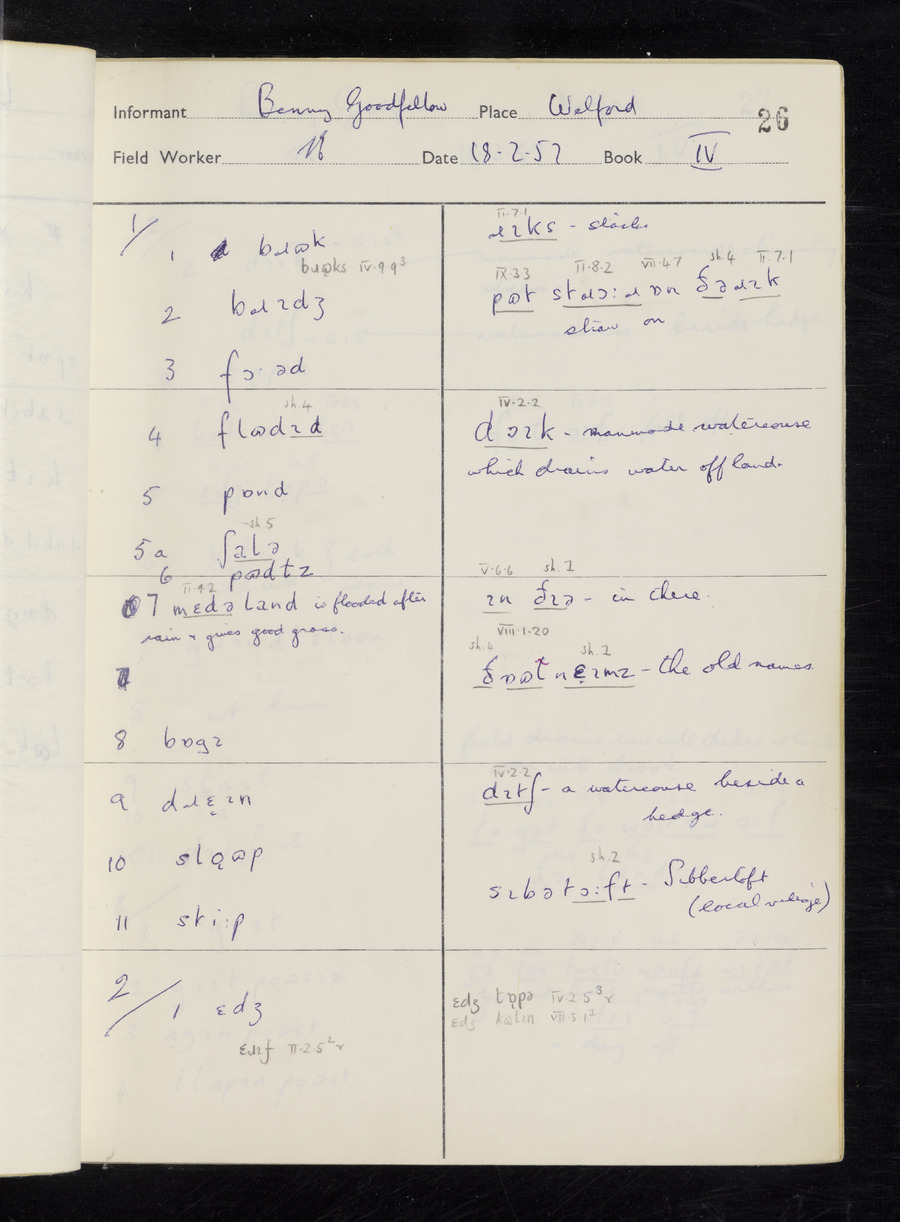 Informant Benny Goodfellow Place Welford 26
Field Worker Date 18-2-57 Book IV
1/
1 bɹɷk
bɹɷks IV·9·9³
2 bɹɪdʒ
3 fɔ·əd
sh.4
4 flɷdɪd
5 pɒnd
sh.5
5a ʃalə
6 pɷdɫz
II·9·2
7 mɛdə land is flooded after
rain & gives good grass.
8 bɒgɪ
9 dɹɛ̣ɪn
10 slɷ̣p
11 sti:p
2/
1 ɛdʒ
II·2·5²
II·7·1
ɹɪks - stacks
IX·3·3 II·8·2 VII·4·7 sh.4 II·7·1
pɷt stɹɔ:ɹ ɒn ðəɹɪk
straw on
IV·2·2
dɔɪk - manmade watercourse
which drains water off land.
V·6·6 sh.2
ɪn ðɪə - in there.
VIII·1·20
sh.4 sh.2
nɛ̣ɪmz - the old names
IV·2·2
dɪtʃ - a watercourse beside a
hedge.
sh.2
sɪbətɔ:ft - Sibbertoft
(local village)
ɛdʒ IV·2·5³
ɛdʒ VII·5·1²